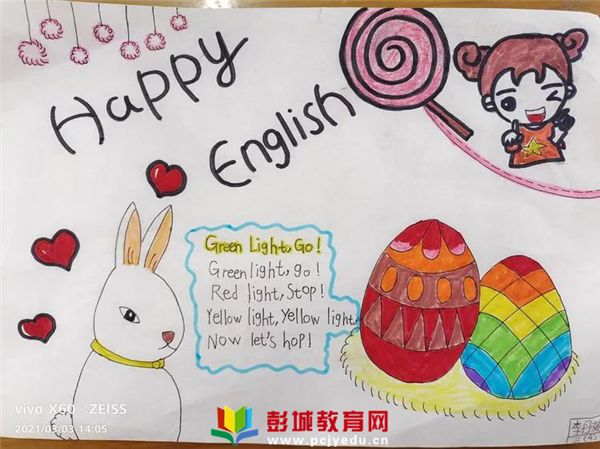 Happy
English
Green Light, Go!
Green light, go!
Red light, Stop!
Yellow light, Yellow light
Now let's hop!
vivo X60 · ZEISS
2021/03/03 14:05
彭城教育网
www.pcjyedu.cn